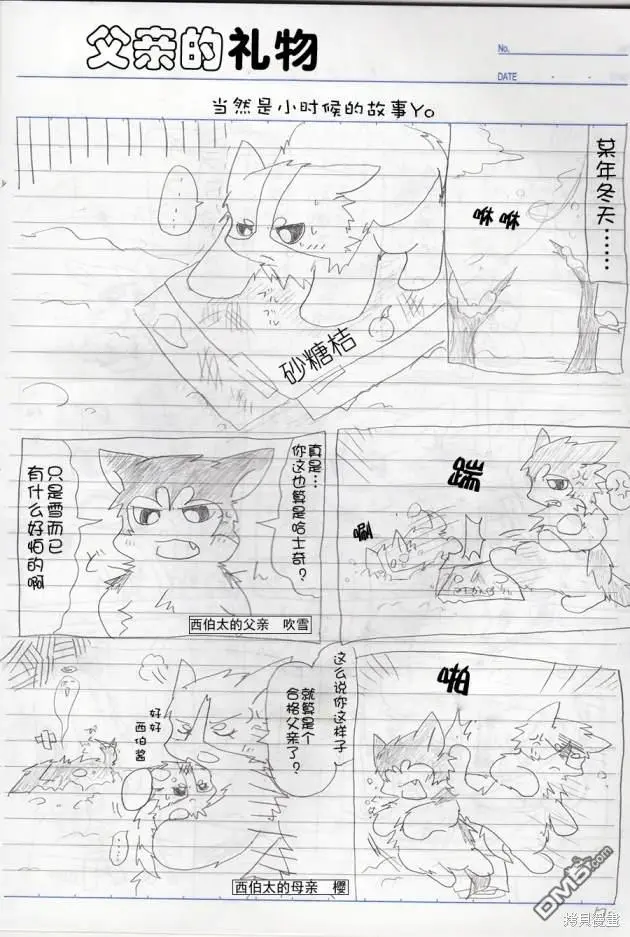 父亲的礼物
No.
DATE
当然是小时候的故事Yo
某年冬天……
咻咻
…
砂糖桔
踹
真是…
你这也算是哈士奇?
只是雪而已
有什么好怕的啊
西伯太的父亲 吹雪
啪
这么说你这样子
就算是个
合格父亲了?
好好
西伯酱
……
西伯太的母亲 樱
DM5.com
拷貝漫畫